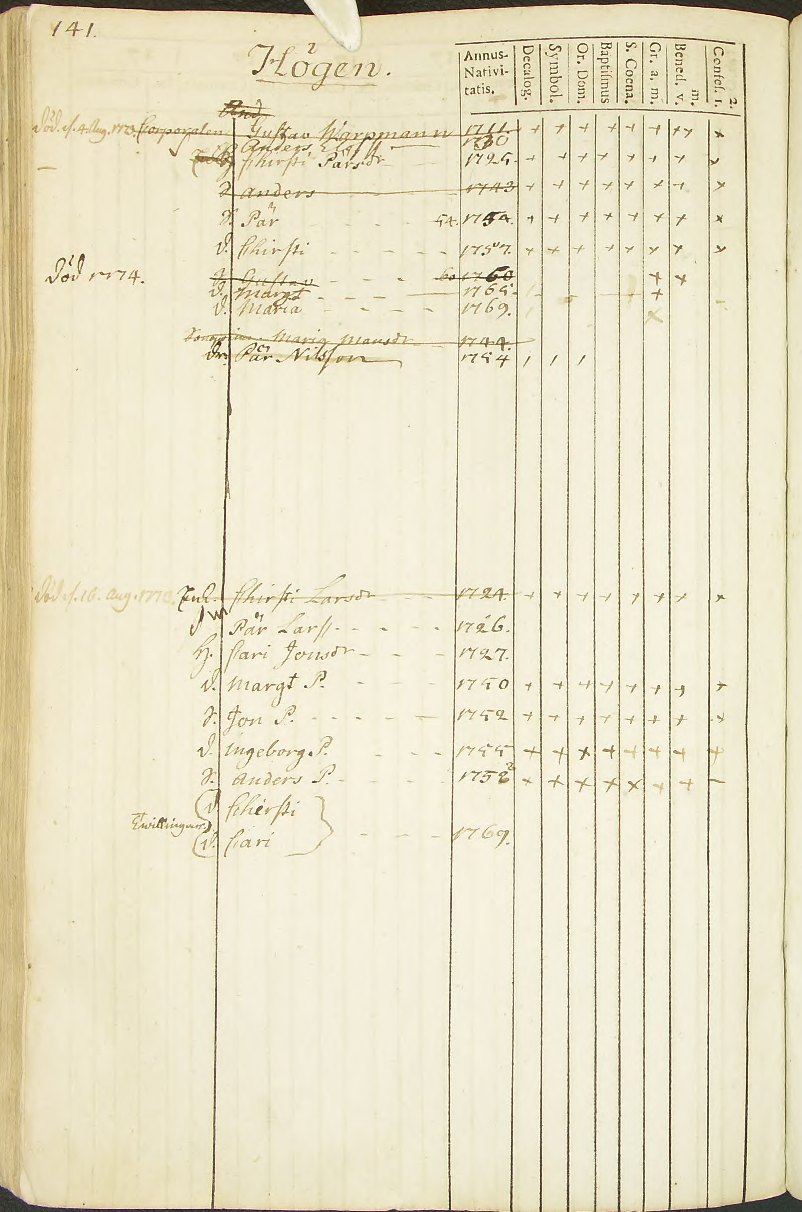 141.
Högen.
Annus-Nativitatis. Decalog. Symbol. Or. Dom. Baptismus S. Coena. Gr. a. m. Bened. v. m. Confes. 1. 2.
And
död d. 4 Aug. 1773. Corporalen Gustav Warpmann 1711. + + + + + + ++ +
Anders 1730
H. Chirsti Pärsdr 1725. + + + + + + + +
S. Anders 1743 + + + + + + + +
S. Pär 54. 1754. + + + + + + + +
d. Chirsti 1757. + + + + + + + +
död 1774. S. Gustav 60 1760 + +
d. Margt 1765. +
d. Maria 1769.
Maria Månsdr 1744.
Dr. Pär Nilsson 1754 / / /
död d. 16. Aug. 1773. Enk. Chirsti Larsdr 1724. + + + + + + + +
Pär Larss. 1726.
H. Cari Jonsdr 1727.
d. Margt P. 1750 + + + + + + + +
S. Jon P. 1752 + + + + + + + +
d. Ingeborg P. 1755 + + + + + + + +
S. Anders P. 1758 + + + + + + + -
d. Chersti
Twillingar
d. Cari 1769.